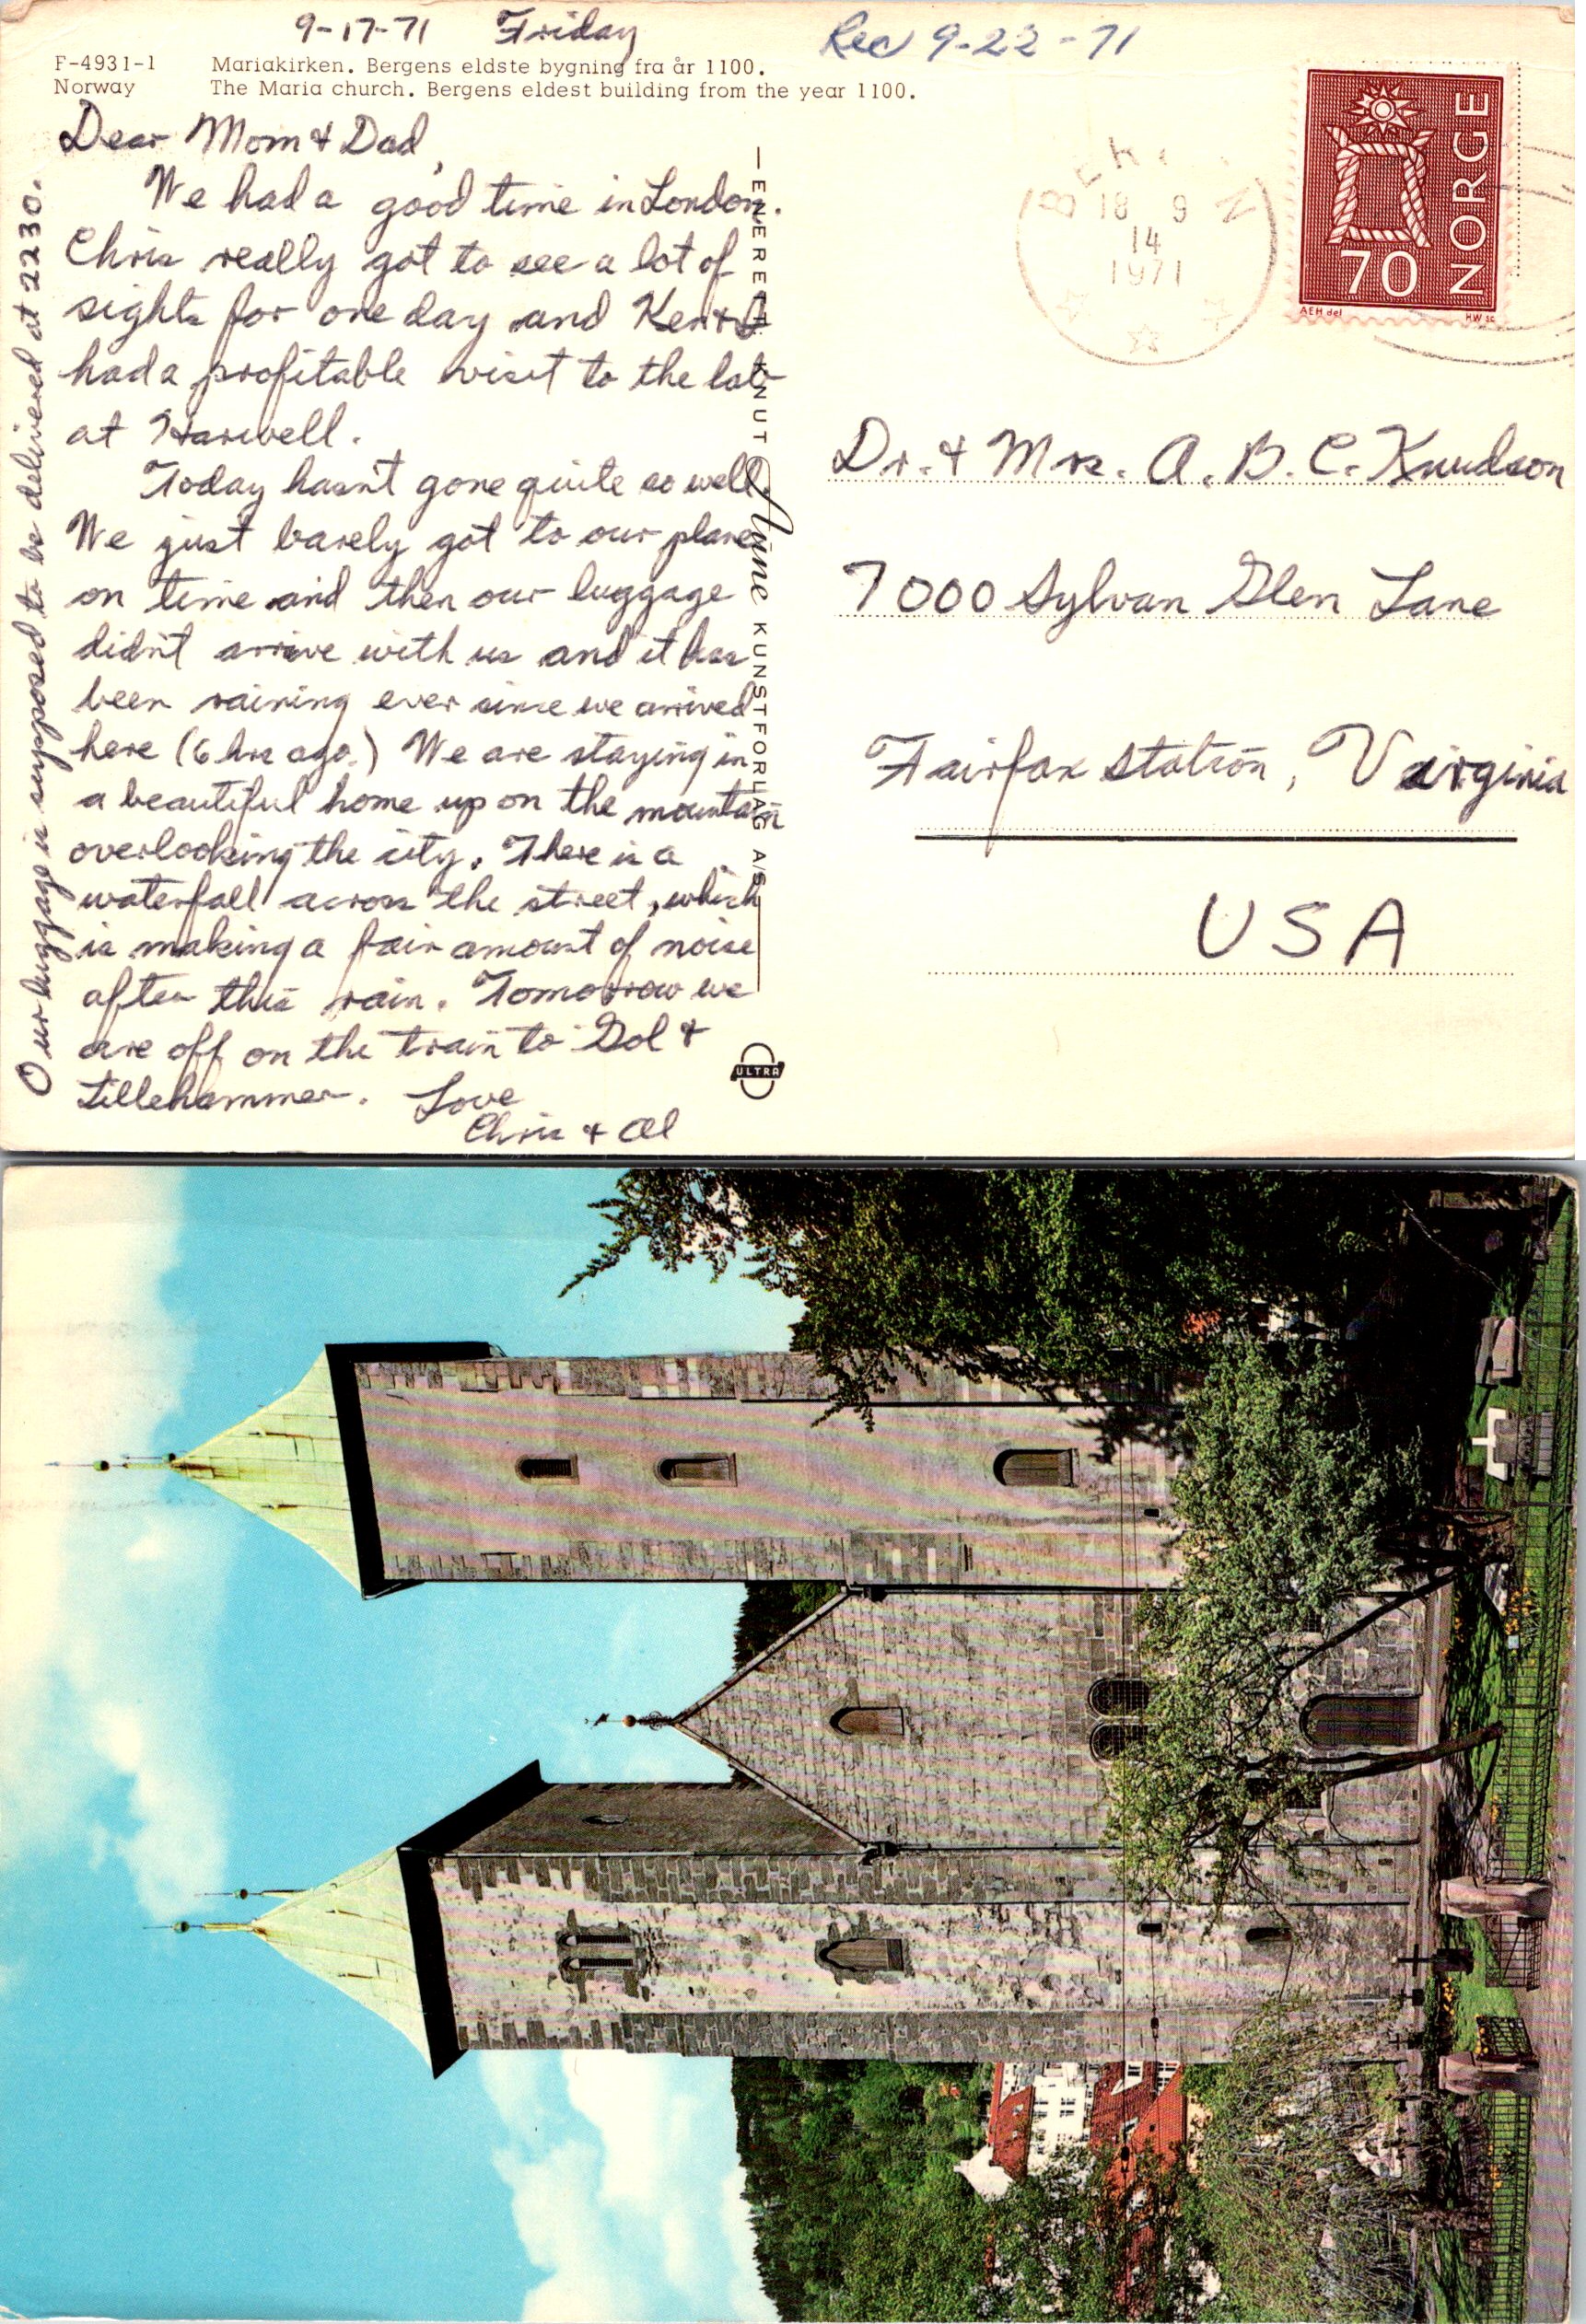 9-17-71 Friday
Rec 9-22-71
F-4931-1 Mariakirken. Bergens eldste bygning fra år 1100.
Norway The Maria church. Bergens eldest building from the year 1100.
Dear Mom & Dad,
We had a good time in London.
Chris really got to see a lot of
sights for one day and Ken & I
had a profitable visit to the lab
at Harwell.
Today hasn't gone quite so well.
We just barely got to our plane
on time and then our luggage
didn't arrive with us and it has
been raining ever since we arrived
here (6 hrs ago.) We are staying in
a beautiful home up on the mountain
overlooking the city. There is a
waterfall across the street, which
is making a fair amount of noise
after this rain. Tomorrow we
are off on the train to Gol &
Lillehammer. Love
Chris & Al
Our luggage is supposed to be delivered at 2230.
— ENERETT: KNUT Aune KUNSTFORLAG A/S
ULTRA
BER EN
18 9
14
1971
NORGE
70
AEH del HW sc
Dr. & Mrs. A. B. C. Knudson
7000 Sylvan Glen Lane
Fairfax Station, Virginia
USA